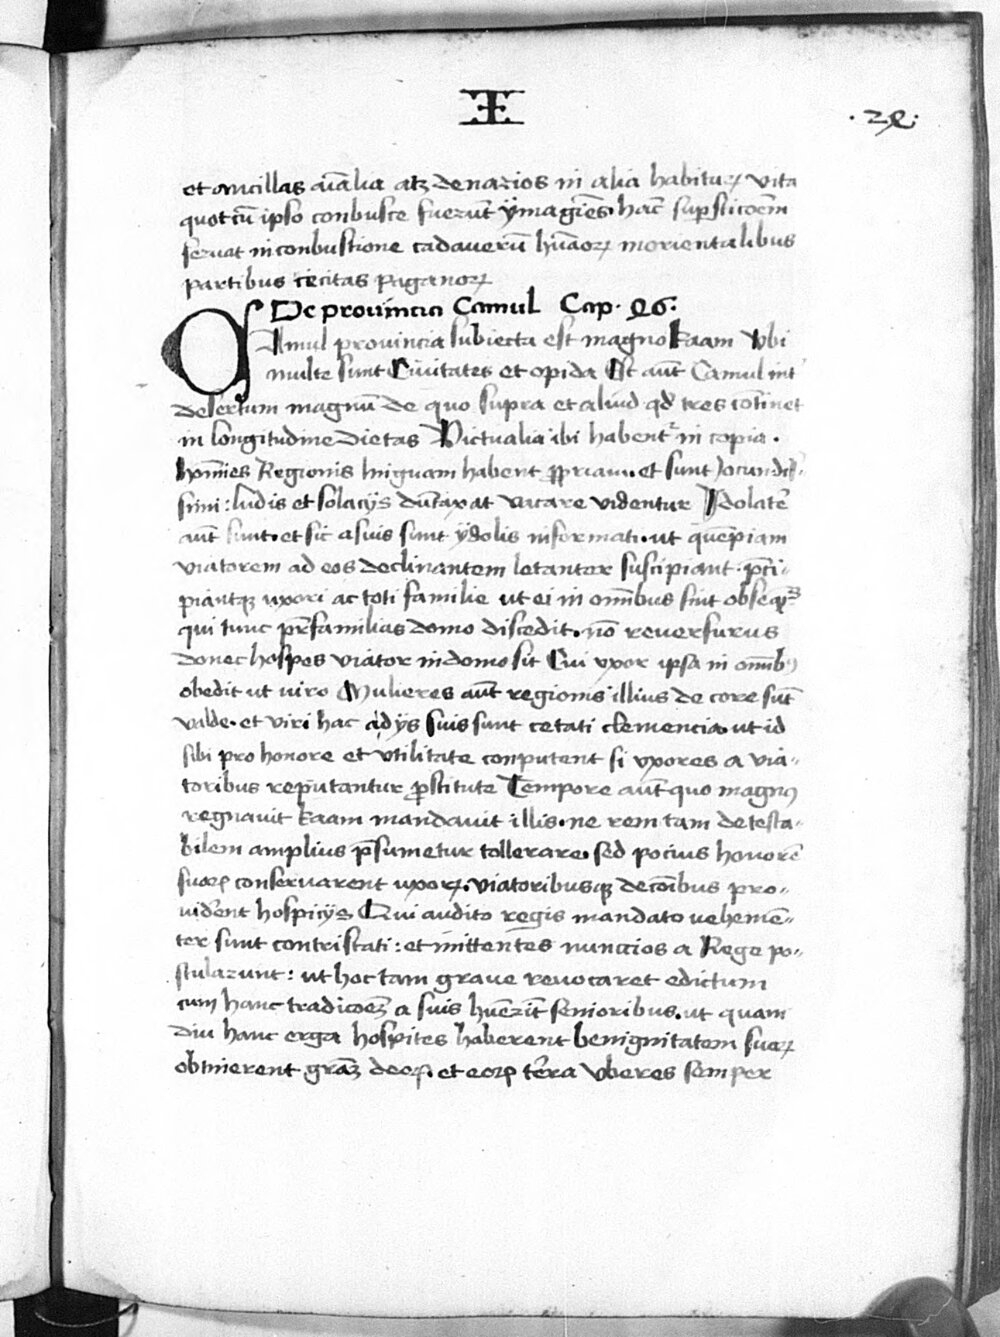 .24.
et ancillas aīalia atqꝫ denarios in alia habituꝝ vita
quot cū ipso conbuste fuerūt ymagīes. hac̄ suꝑsticōem
seruat in conbustione cadaverū hūaoꝝ in orientalibus
partibus cecitas paganoꝝ
De prouincia Camul Cap. 46.
CAmul prouincia subiecta est magno kaam Vbi
multe sunt Ciuitates et opida Est aut̄ Camul int̄
desertum magnū de quo supra et aliud qd̄ tres cōtinet
in longitudine dietas Victualia ibi habent̄ in copia.
hoīnes Regionis linguam habent ꝓpriam. et sunt Jocundis-
simi: ludis et solacijs dūtaxat vacare videntur Idolatē
aut̄ sunt. et sic a suis sunt ydolis informati. ut quēpiam
viatorem ad eos declinantem letanter suscipiant. p̄ci-
piantqꝫ uxori ac toti familie ut ei in om̄ibus sint obseqⁱ
qui tunc pr̄familias domo discedit. nō reuersurus
donec hospes viator in domo sit Cui vxor ipsa in om̄ibꝰ
obedit ut viro Mulieres aut̄ regionis illius decore sūt
valde. et viri hac a dijs suis sunt cecati clemencia. ut id
sibi pro honore et vtilitate conputent si vxores a via-
toribus reputantur ꝓstitute Tempore aut̄ quo magnꝰ
regnauit kaam mandauit illis. ne rem tam detesta-
bilem amplius p̄sumetur tollerare. sed pocius honorē
suoꝝ conseruarent uxoꝝ. viatoribusqꝫ de cōibus pro-
vider̄ent hospicijs Qui audito regis mandato vehemē-
ter sunt contristati: et mittentes nuncios a Rege po-
stularunt: ut hoc tam graue reuocaret edictum
cum hanc tradicōeꝫ a suis hūerīt senioribus. ut quam
diu hanc erga hospites haberent benignitatem suaꝝ
obtinerent grāꝫ deoꝝ. et eoꝝ terra vberes semper